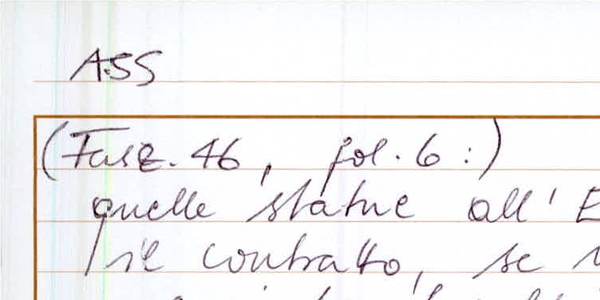 ASS
(Fasz. 46, fol. 6:)
quelle statue all'
/il contratto, se